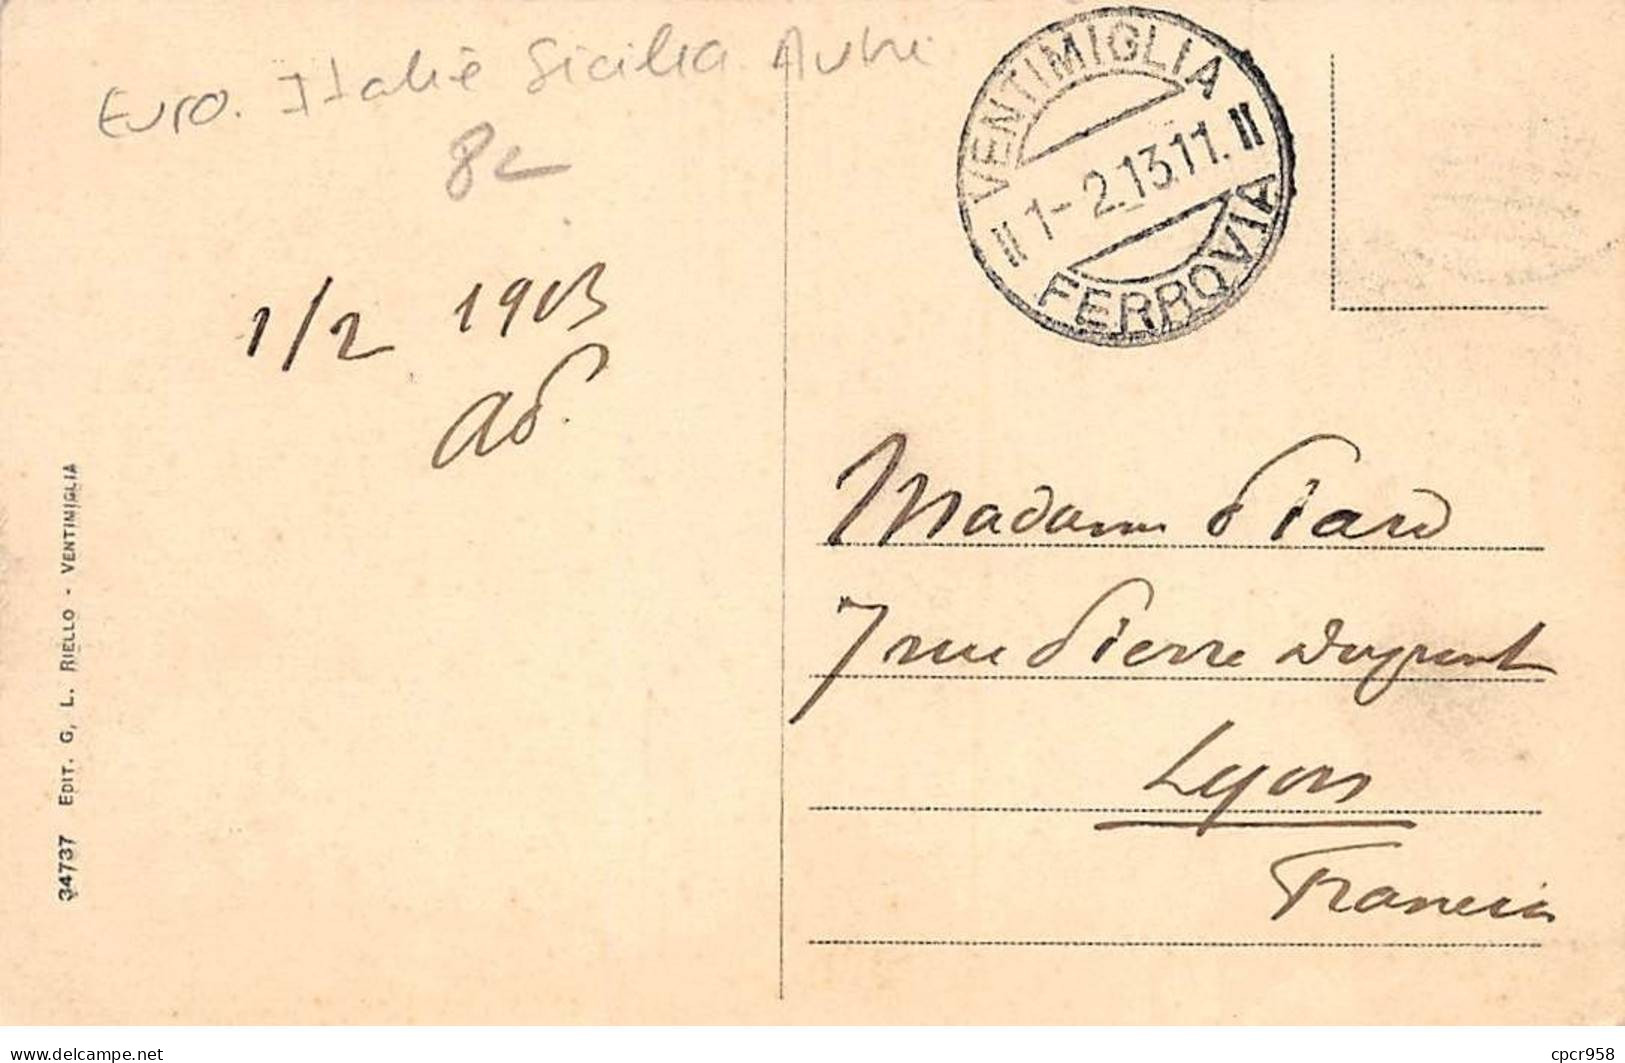 Euro. Italie Sicilia Autre
8€
VENTIMIGLIA
1-2.13.11.
FERROVIA
1/2 1913
Madame Piard
7 rue Pierre Dupont
Lyon
Francia
34737 EDIT. G, L. RIELLO - VENTIMIGLIA
delcampe.net
cpcr958